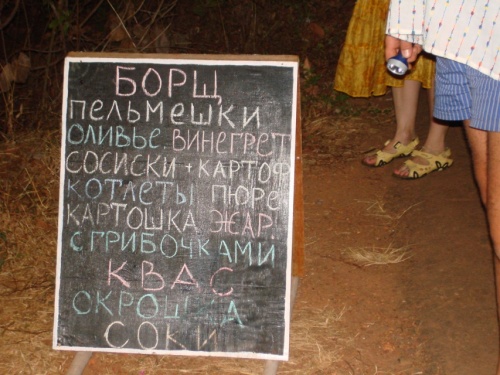 БОРЩ
ПЕЛЬМЕШКИ
ОЛИВЬЕ ВИНЕГРЕТ
СОСИСКИ + КАРТОФ
КОТЛЕТЫ ПЮРЕ
КАРТОШКА ЖАР
С ГРИБОЧКАМИ
КВАС
ОКРОШКА
СОКИ